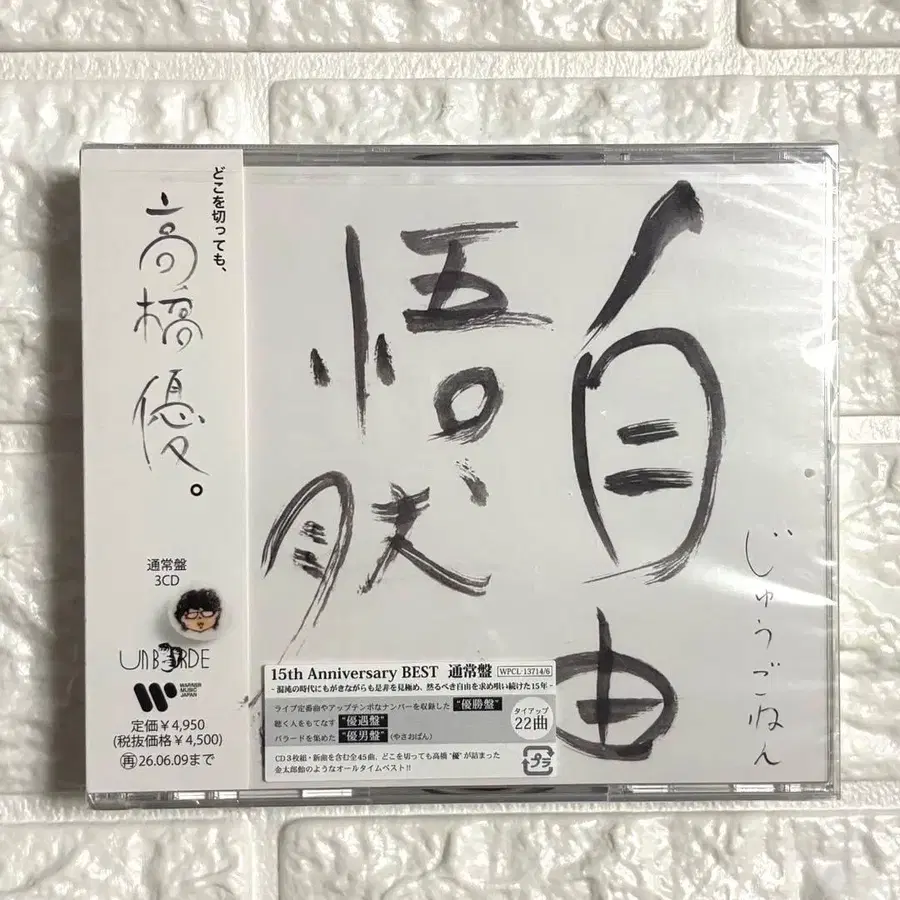 どこを切っても、
高橋優。
通常盤
3CD
unBORDE
WARNER MUSIC JAPAN
定価￥4,950
(税抜価格￥4,500)
再26.06.09まで
自由
悟然
じゅうごねん
15th Anniversary BEST 通常盤 WPCL-13714/6
- 混沌の時代にもがきながらも是非を見極め、然るべき自由を求め唄い続けた15年 -
ライブ定番曲やアップテンポなナンバーを収録した"優勝盤"
聴く人をもてなす"優遇盤"
バラードを集めた"優男盤"(やさおばん)
タイアップ
22曲
CD3枚組・新曲を含む全45曲、どこを切っても高橋"優"が詰まった
金太郎飴のようなオールタイムベスト!!
プラ